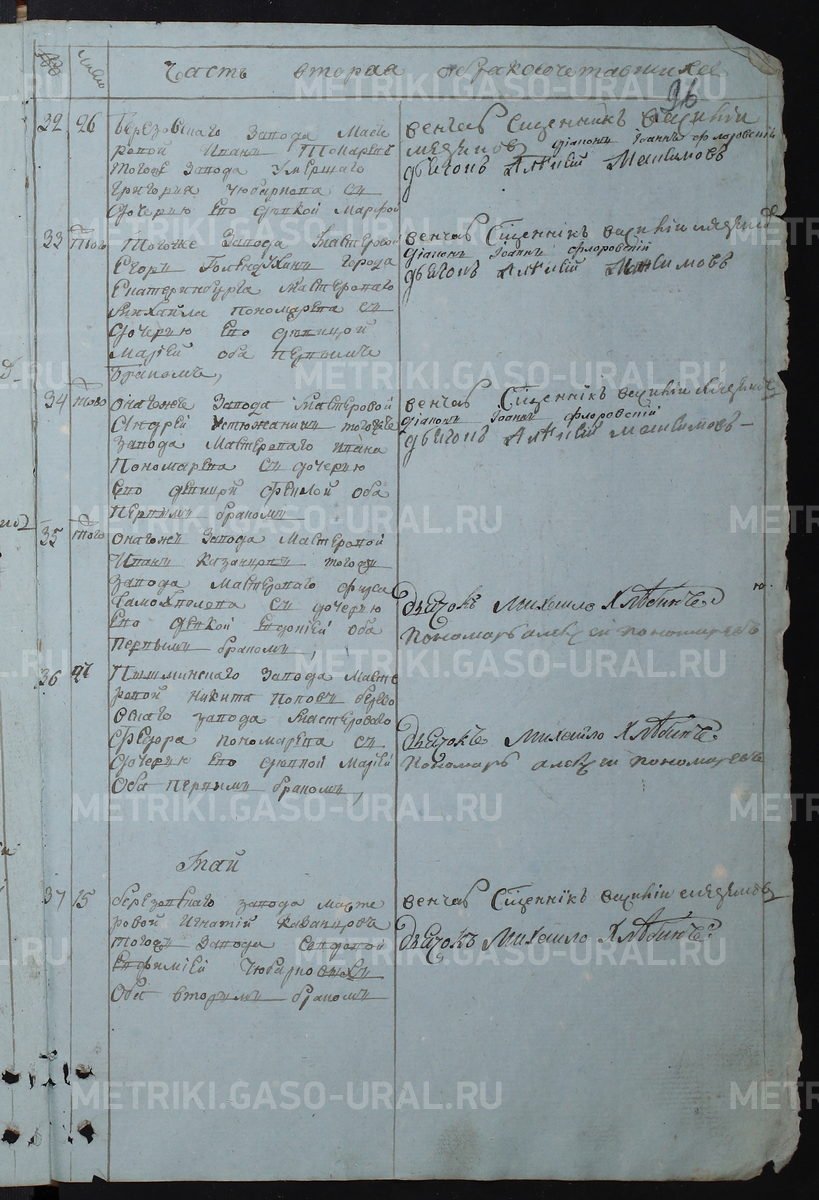 Часть вторая о бракосочетавшихся
96
32 26 Березовскаго завода масте
ровой Иванъ Токаревъ
тогоже завода умершаго
григорья Чюваркова съ
дочерью ево девкой Марфой
венчав Сщенникъ василии
дiаконъ Iоаннъ флоровскiй
дьячокъ Алексiй Максимовъ
33 того Тогоже завода мастеровой
Егоръ города
Екатеринбурга мастероваго
Михайла пономарева съ
дочерью ево девицой
Марьей оба первымъ
бракомъ,
венчав Сщенникъ василии
дiаконъ Iоаннъ флоровскiй
дьячокъ Алексiй Максимовъ
34 того Онагожъ завода мастеровой
Андрей Устюжанинъ тогоже
завода мастероваго Ивана
Пономарева съ дочерью
ево девицой феклой оба
первымъ бракомъ
венчав Сщенникъ василии
дiаконъ Iоаннъ флоровскiй
дьячокъ Алексiй Максимовъ
35 того Онагожъ завода мастеровой
Иванъ тогоже
завода мастероваго фирса
Самохвалова съ дочерью
ево девкой оба
первымъ бракомъ,
дьячокъ Михайло Хлѣбинъ
пономарь алексѣй пономаревъ
36 27 Пышминскаго завода масте
ровой Никита Поповъ берез
овскаго завода мастероваго
федора пономарева съ
дочерью ево девкой Марьей
Оба первымъ бракомъ,
дьячокъ Михайло Хлѣбинъ
пономарь алексѣй пономаревъ
Май
37 15 березовскаго завода масте
ровой Игнатiй Казанцовъ
тогожъ завода со вдовой
Ефимiей Чюварковой
Оба вторымъ бракомъ
венчав Сщенникъ василии
дьячокъ Михайло Хлѣбинъ
METRIKI.GASO-URAL.RU